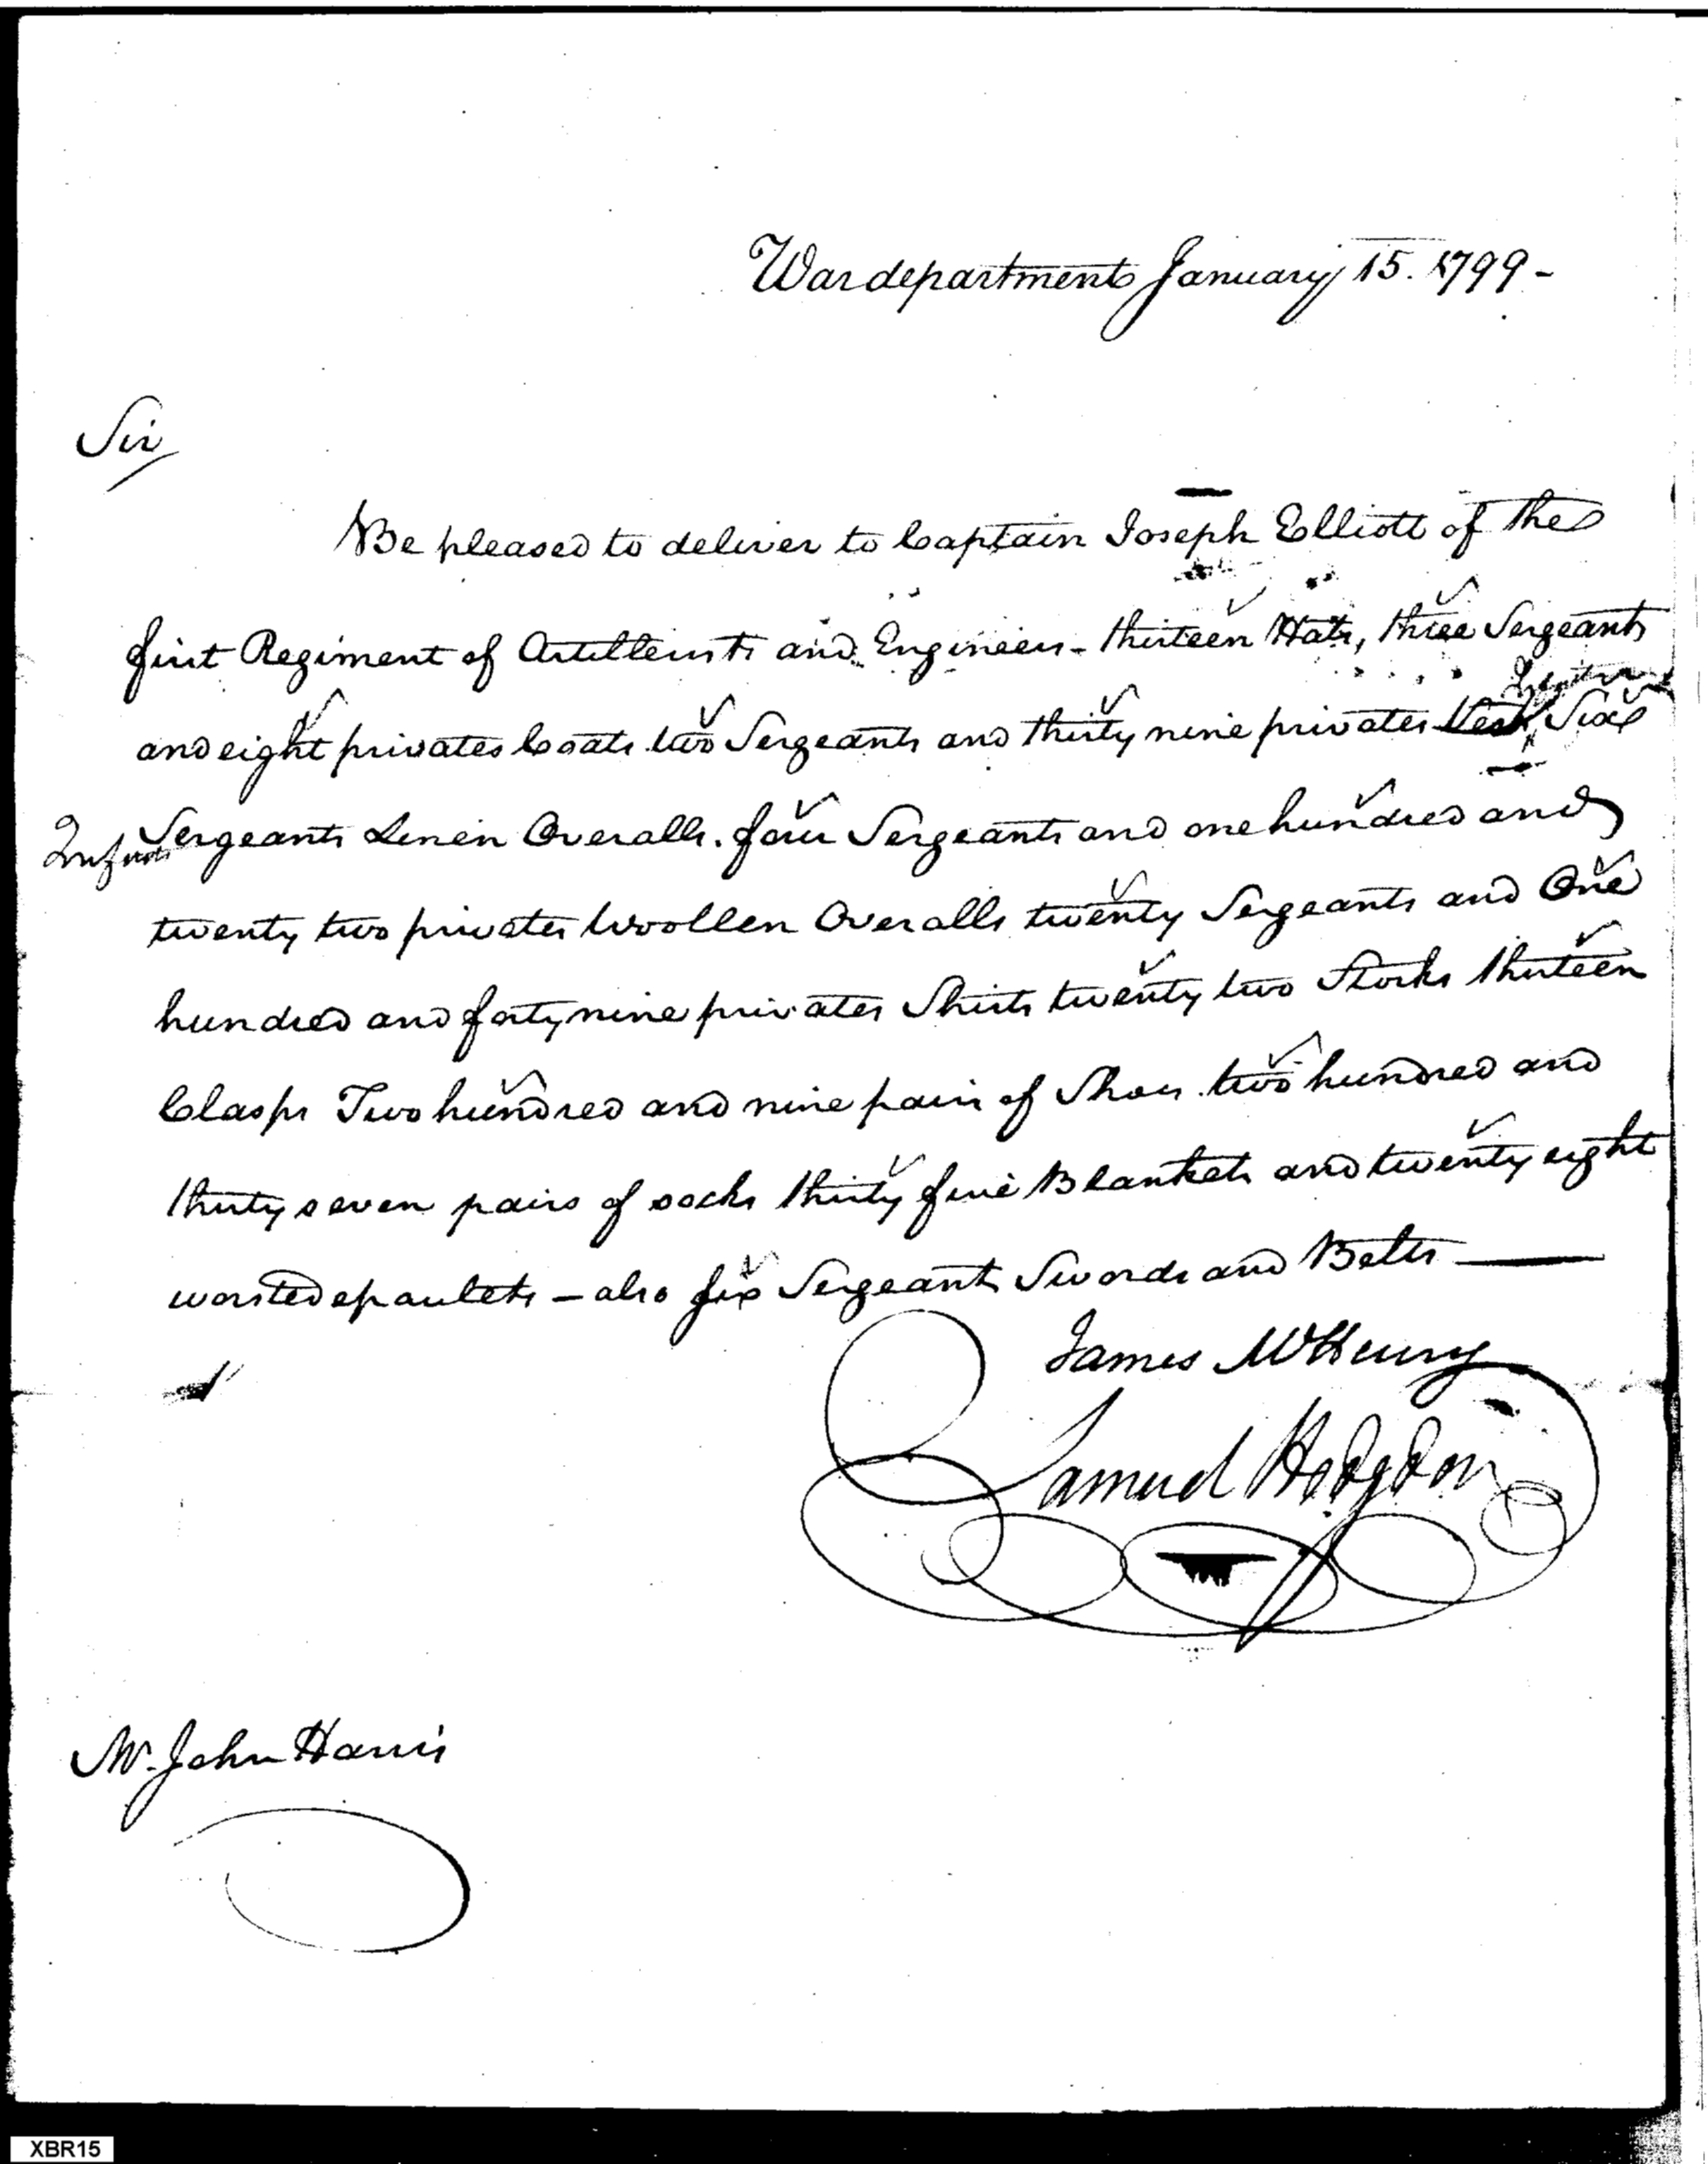 War department January 15. 1799 -
Sir
Be pleased to deliver to Captain Joseph Elliott of the
first Regiment of Artillerists and Engineers - thirteen Hats, three Sergeants
and eight privates Coats two Sergeants and thirty nine privates Vests Six
Infant
Sergeants Linen Overalls. four Sergeants and one hundred and
twenty two privates Woollen Overalls twenty Sergeants and One
hundred and forty nine privates Shirts twenty two Stocks thirteen
Clasps Two hundred and nine pairs of Shoes. two hundred and
thirty seven pairs of socks thirty five Blankets and twenty eight
worsted epaulets - also six Sergeants Swords and Belts
James McHenry
Samuel Hodgdon
Mr. John Harris
XBR15